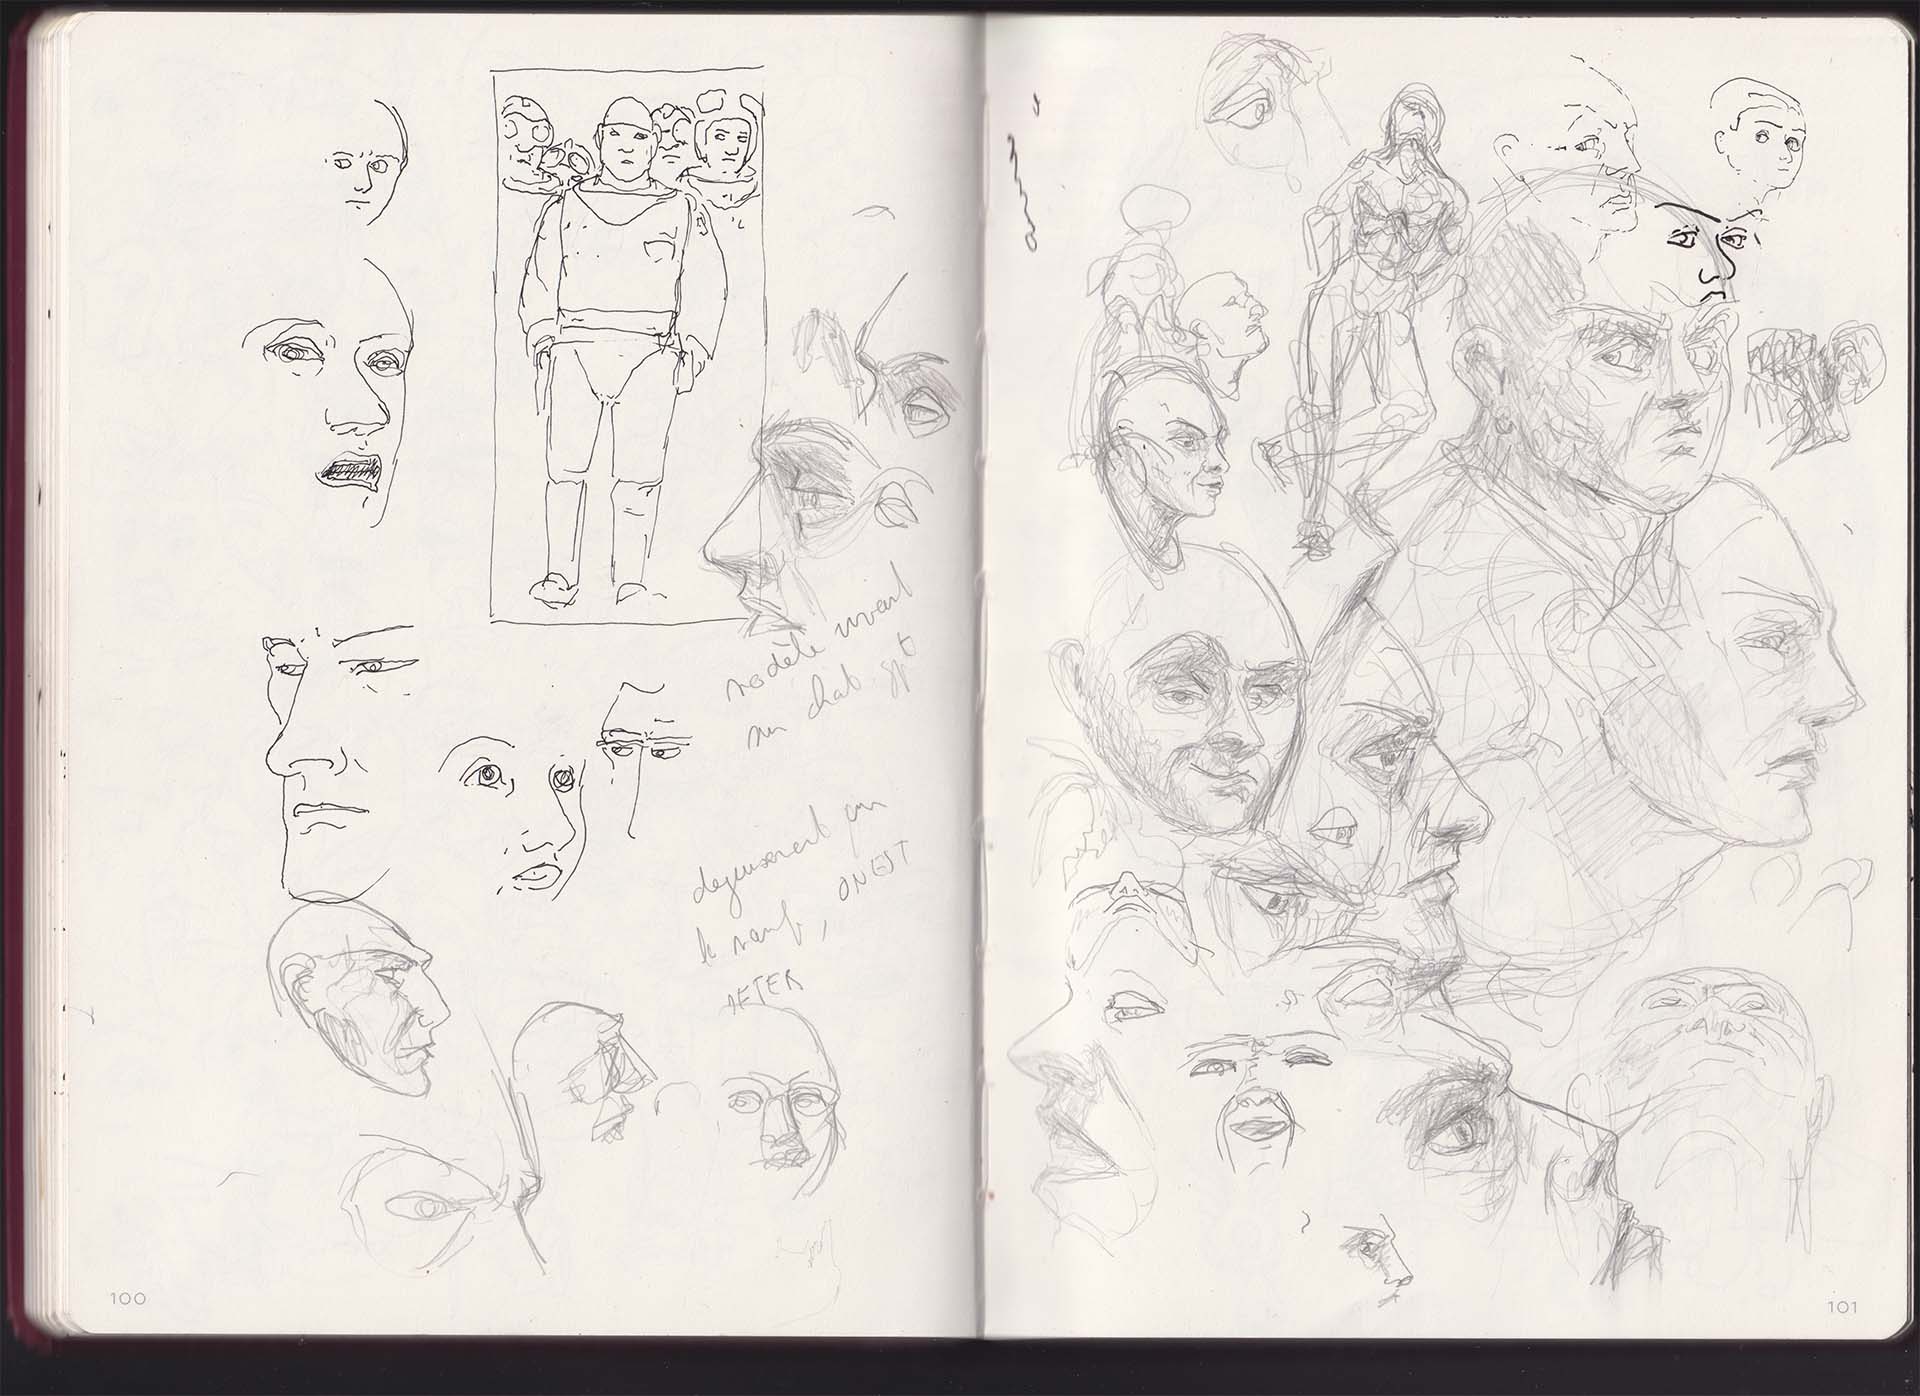 modèle vivant
sur chat gpt
deguisement pour
le , ON EST
AFTER
100
101